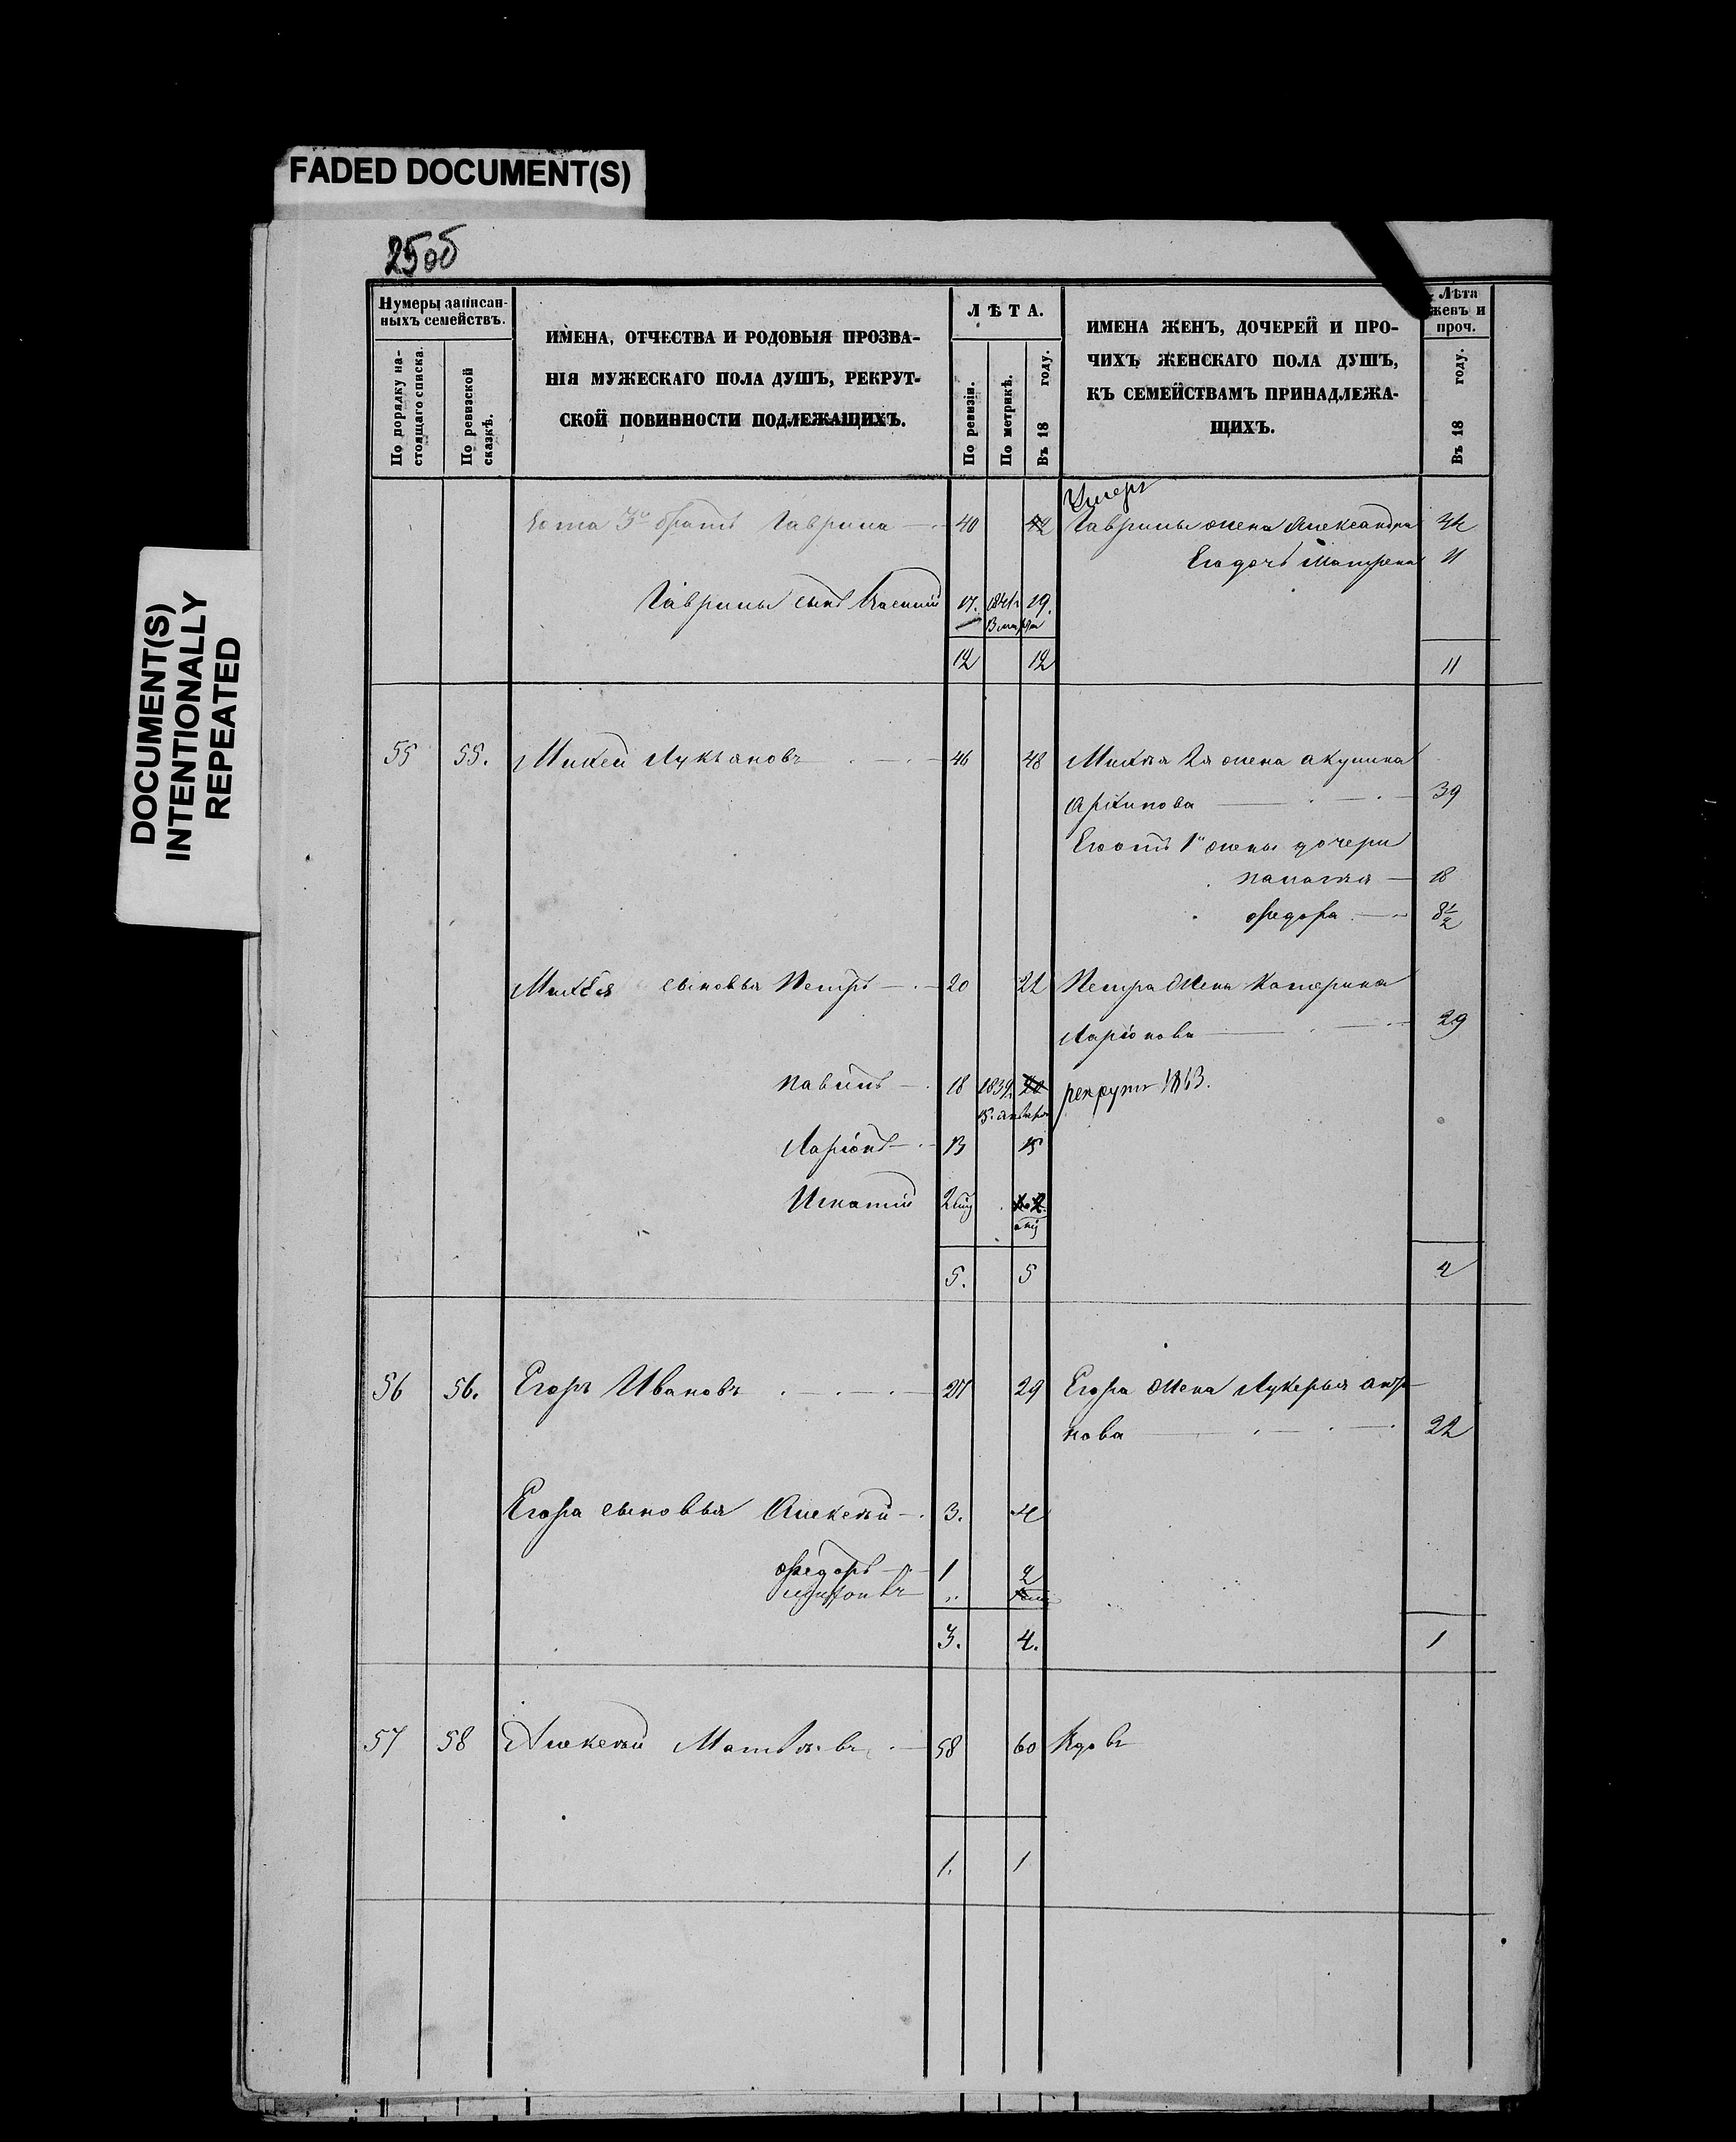 FADED DOCUMENT(S)
DOCUMENT(S)
INTENTIONALLY
REPEATED
25об
Нумеры записан-
ныхъ семействъ.
По порядку на-
стоящаго списка.
По ревизской
сказкѣ.
ИМЕНА, ОТЧЕСТВА И РОДОВЫЯ ПРОЗВА-
НІЯ МУЖЕСКАГО ПОЛА ДУШЪ, РЕКРУТ-
СКОЙ ПОВИННОСТИ ПОДЛЕЖАЩИХЪ.
ЛѢТА.
По ревизіи.
По метрикѣ.
Въ 18 году.
ИМЕНА ЖЕНЪ, ДОЧЕРЕЙ И ПРО-
ЧИХЪ ЖЕНСКАГО ПОЛА ДУШЪ,
КЪ СЕМЕЙСТВАМЪ ПРИНАДЛЕЖА-
ЩИХЪ.
Лѣта
женъ и
проч.
Въ 18 году.
Умеръ
3й братъ Гаврила 40 42 Гаврилы жена Александра
Его дочь Матрена 11
Гаврилы сынъ Василій 17. 1841 19.
13 марта
12 12 11
55 55. Михей Лукьяновъ 46 48 Михѣя 2я жена Акулина
Архипова 39
Его отъ 1й жены дочери
18
Федора 8 1/2
Михѣя сыновья Петръ 20 22 Петра жена Катерина
Ларіонова 29
Павилъ 18 1839 20 рекрутъ 1863.
15
Ларіонъ 13 15
Игнатій 2
5. 5 4
56 56. Егоръ Ивановъ 27 29 Егора жена Лукерья
нова 22
Егора сыновья Алексѣй 3. 4
Федоръ 1 2
3. 4. 1
57 58 Алексѣй Матвѣевъ 58 60 Вдовъ
1. 1